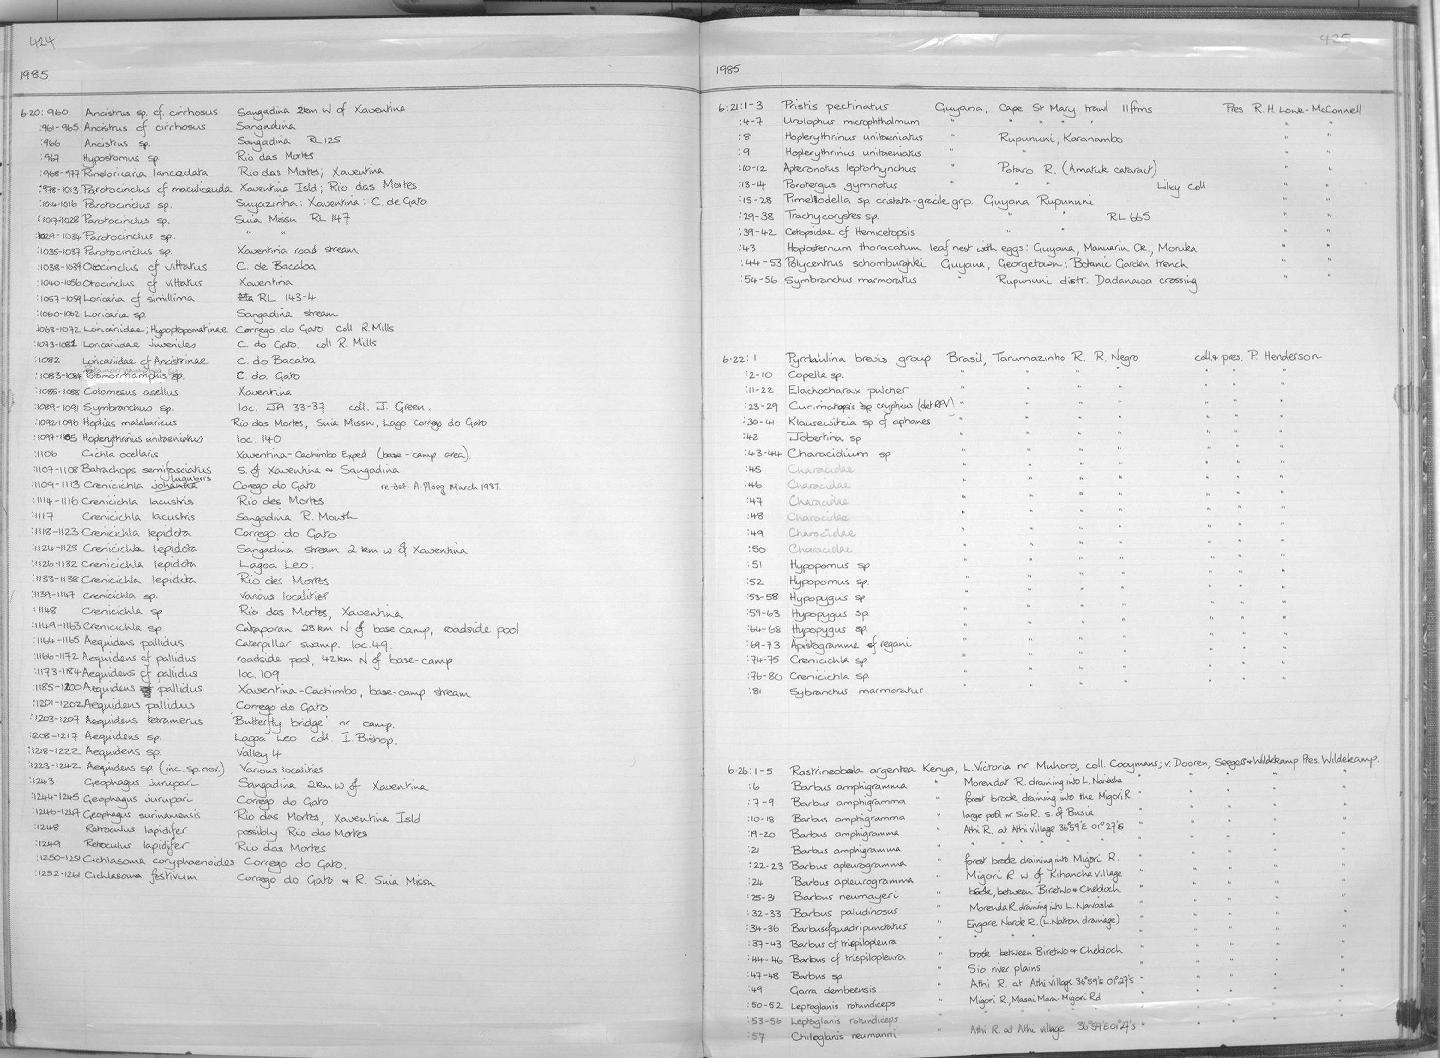 424
1985
6.20:960 Ancistrus sp. cf. cirrhosus Sangadina 2km W of Xaventina
:961-965 Ancistrus cf cirrhosus Sangadina
:966 Ancistrus sp. Sangadina RL 125
:967 Hypostomus sp Rio das Mortes
:968-977 Rineloricaria lanceolata Rio das Mortes; Xaventina
:978-1013 Parotocinclus cf maculicauda Xaventina Isld; Rio das Mortes
:1014-1016 Parotocinclus sp. Suyazinha: Xaventina: C. de Gato
:1017-1028 Parotocinclus sp. Suia Missu RL 147
:1029-1034 Parotocinclus sp. " "
:1035-1037 Parotocinclus sp. Xaventina road stream
:1038-1039 Otocinclus cf vittatus C. de Bacaba
:1040-1056 Otocinclus cf vittatus Xaventina
:1057-1059 Loricaria cf simillima RL 143-4
:1060-1062 Loricaria sp. Sangadina stream
:1063-1072 Loricariidae; Hypoptopomatinae Corrego do Gato coll R. Mills
:1073-1081 Loricariidae juveniles C. do Gato. coll R. Mills
:1082 Loricariidae cf Ancistrinae C. do Bacaba
:1083-1084 Potamorrhaphis sp. C. do. Gato
:1085-1088 Colomesus asellus Xaventina
:1089-1091 Symbranchus sp. loc. JA 33-37 coll. J. Green.
:1092-1096 Hoplias malabaricus Rio das Mortes, Suia Missu, Lago Corrego do Gato
:1097-1105 Hoplerythrinus unitaeniatus loc. 140
:1106 Cichla ocellaris Xaventina-Cachimbo Exped (base-camp area)
:1107-1108 Batrachops semifasciatus S. of Xaventina & Sangadina
:1109-1113 Crenicichla johanna lugubris Corego do Gato re-det. A. Ploeg March 1987.
:1114-1116 Crenicichla lacustris Rio des Mortes
:1117 Crenicichla lacustris Sangadina R. Mouth
:1118-1123 Crenicichla lepidota Corrego do Gato
:1124-1125 Crenicichla lepidota Sangadina stream 2 km W of Xaventina
:1126-1132 Crenicichla lepidota Lagoa Leo.
:1133-1138 Crenicichla lepidota Rio des Mortes
:1139-1147 Crenicichla sp. various localities
:1148 Crenicichla sp Rio das Mortes, Xaventina
:1149-1163 Crenicichla sp Cataporan 28km N of base camp, roadside pool
:1164-1165 Aequidens pallidus Caterpillar swamp. loc. 49.
:1166-1172 Aequidens cf pallidus roadside pool, 42km N of base-camp
:1173-1184 Aequidens cf pallidus loc. 109
:1185-1200 Aequidens pallidus Xaventina-Cachimbo, base-camp stream
:1201-1202 Aequidens pallidus Corrego do Gato
:1203-1207 Aequidens tetramerus 'Butterfly bridge' nr camp.
:1208-1217 Aequidens sp. Lagoa Leo coll. I. Bishop.
:1218-1222 Aequidens sp. Valley 4
:1223-1242 Aequidens sp. (inc. sp. nov.) Various localities
:1243 Geophagus jurupari Sangadina 2km W of Xaventina
:1244-1245 Geophagus jurupari Corrego do Gato
:1246-1247 Geophagus surinamensis Rio das Mortes, Xaventina Isld
:1248 Retroculus lapidifer possibly Rio das Mortes
:1249 Retroculus lapidifer Rio das Mortes
:1250-1251 Cichlasoma coryphaenoides Corrego do Gato.
:1252-1261 Cichlasoma festivum Corrego do Gato & R. Suia Missu
425
1985
6.21:1-3 Pristis pectinatus Guyana, Cape St Mary trawl 11 ftms Pres R. H. Lowe-McConnell
:4-7 Urolophus microphthalmum " " " " " " "
:8 Hoplerythrinus unitaeniatus " Rupununi, Karanambo " "
:9 Hoplerythrinus unitaeniatus " " " "
:10-12 Apteronotus leptorhynchus " Potaro R. (Amatuk cataract) " "
:13-14 Porotergus gymnotus " " " Liley coll " "
:15-28 Pimelodella sp cristata-gracile grp. Guyana Rupununi " "
:29-38 Trachycorystes sp. " " RL 665 " "
:39-42 Cetopsidae cf Hemicetopsis " " " "
:43 Hoplosternum thoracatum leaf nest with eggs: Guyana, Manuarin Ck, Moruka " "
:44-53 Polycentrus schomburgkii Guyana, Georgetown: Botanic Garden trench " "
:54-56 Symbranchus marmoratus " Rupununi distr. Dadanawa crossing " "
6.22:1 Pyrrhulina brevis group Brasil, Tarumazinho R. R. Negro coll & pres. P. Henderson
:2-10 Copella sp. " " " " " " "
:11-22 Elachocharax pulcher " " " " " " "
:23-29 Curimatopsis sp cryphius (det RPV) " " " " " " "
:30-41 Klausewitzia sp cf aphanes " " " " " " "
:42 Jobertina sp " " " " " " "
:43-44 Characidium sp " " " " " " "
:45 Characidae " " " " " " "
:46 Characidae " " " " " " "
:47 Characidae " " " " " " "
:48 Characidae " " " " " " "
:49 Characidae " " " " " " "
:50 Characidae " " " " " " "
:51 Hypopomus sp " " " " " " "
:52 Hypopomus sp. " " " " " " "
:53-58 Hypopygus sp " " " " " " "
:59-63 Hypopygus sp. " " " " " " "
:64-68 Hypopygus sp. " " " " " " "
:69-73 Apistogramma cf regani " " " " " " "
:74-75 Crenicichla sp " " " " " " "
:76-80 Crenicichla sp. " " " " " " "
:81 Sybranchus marmoratus
6.26:1-5 Rastrineobola argentea Kenya, L. Victoria nr Muhoro, coll. Cooymans; v. Dooren, Seegers & Wildekamp Pres. Wildekamp.
:6 Barbus amphigramma " Morendat R. draining into L. Naivasha " " " "
:7-9 Barbus amphigramma " forest brook draining into the Migori R " " " "
:10-18 Barbus amphigramma " large pool nr Sio R. s. of Busia " " " "
:19-20 Barbus amphigramma " Athi R. at Athi village 36°59'E 01°27's " " " "
:21 Barbus amphigramma " " " " " " " "
:22-23 Barbus apleurogramma " forest brook draining into Migori R. " " " "
:24 Barbus apleurogramma " Migori R W of Kihancha village " " " "
:25-31 Barbus neumayeri " brook, between Biretwo & Chebloch " " " "
:32-33 Barbus paludinosus " Morendat R. draining into L. Naivasha " " " "
:34-36 Barbus cf quadripunctatus " Engare Narok R. (L. Natron drainage) " " " "
:37-43 Barbus cf trispilopleura " " " " "
:44-46 Barbus cf trispilopleura " brook between Biretwo & Chebloch " " " "
:47-48 Barbus sp " Sio river plains " " " "
:49 Garra dembeensis " Athi R. at Athi village 36°59'E 01°27's " " " "
:50-52 Leptoglanis rotundiceps " Migori R, Masai Mara-Migori Rd " " " "
:53-56 Leptoglanis rotundiceps " " " " "
:57 Chiloglanis neumanni " Athi R. at Athi village 36°59'E 01°27's " " " "